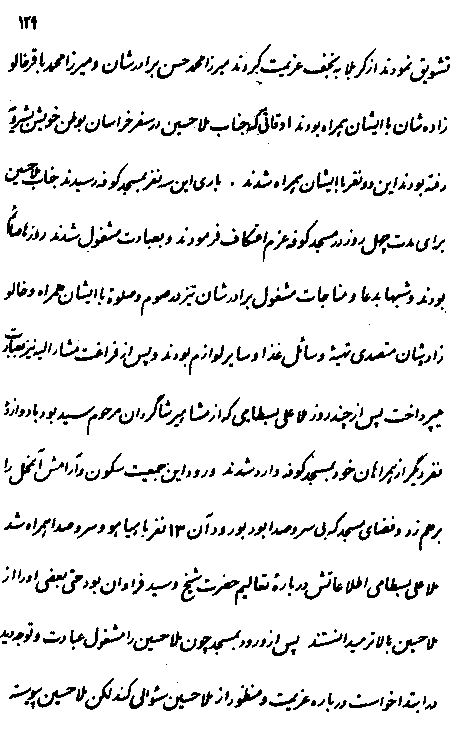 ۱۲۹
تشویق نمودند از کربلا به نجف عزیمت کردند میرزا محمد حسن برادرشان و میرزا محمد باقر خالو
زاده شان با ایشان همراه بودند اوقاتی که جناب ملا حسین در سفر خراسان بوطن خویش بشرویه
رفته بودند این دو نفر با ایشان همراه شدند . باری این سه نفر بمسجد کوفه رسیدند جناب ملا حسین
برای مدت چهل روز در مسجد کوفه عزم اعتکاف فرمودند و بعبادت مشغول شدند روزها صائم
بودند و شبها بدعا و مناجات مشغول برادرشان نیز در صوم و صلوة با ایشان همراه و خالو
زاد ایشان متصدی تهیهٔ وسائل غذا و سایر لوازم بودند و پس از فراغت مشار الیه نیز بعبادت
میپرداخت پس از چند روز ملا علی بسطامی که از مشاهیر شاگردان مرحوم سید بود با دوازده
نفر دیگر از همراهان خود بمسجد کوفه وارد شدند ورود این جمعیت سکون و آرامش آنمحل را
برهم زد و فضای مسجد که بی سر و صدا بود بورود آن ۱۳ نفر با هیاهو و سر و صدا همراه شد
ملا علی بسطامی اطلاعاتش در بارهٔ تعالیم حضرت شیخ و سید فراوان بود حتی بعضی او را از
ملا حسین بالاتر میدانستند پس از ورود بمسجد چون ملا حسین را مشغول عبادت و توجه دید
در ابتدا خواست در باره عزیمت و منظور از ملا حسین سئوالی کند لکن ملا حسین پیوسته